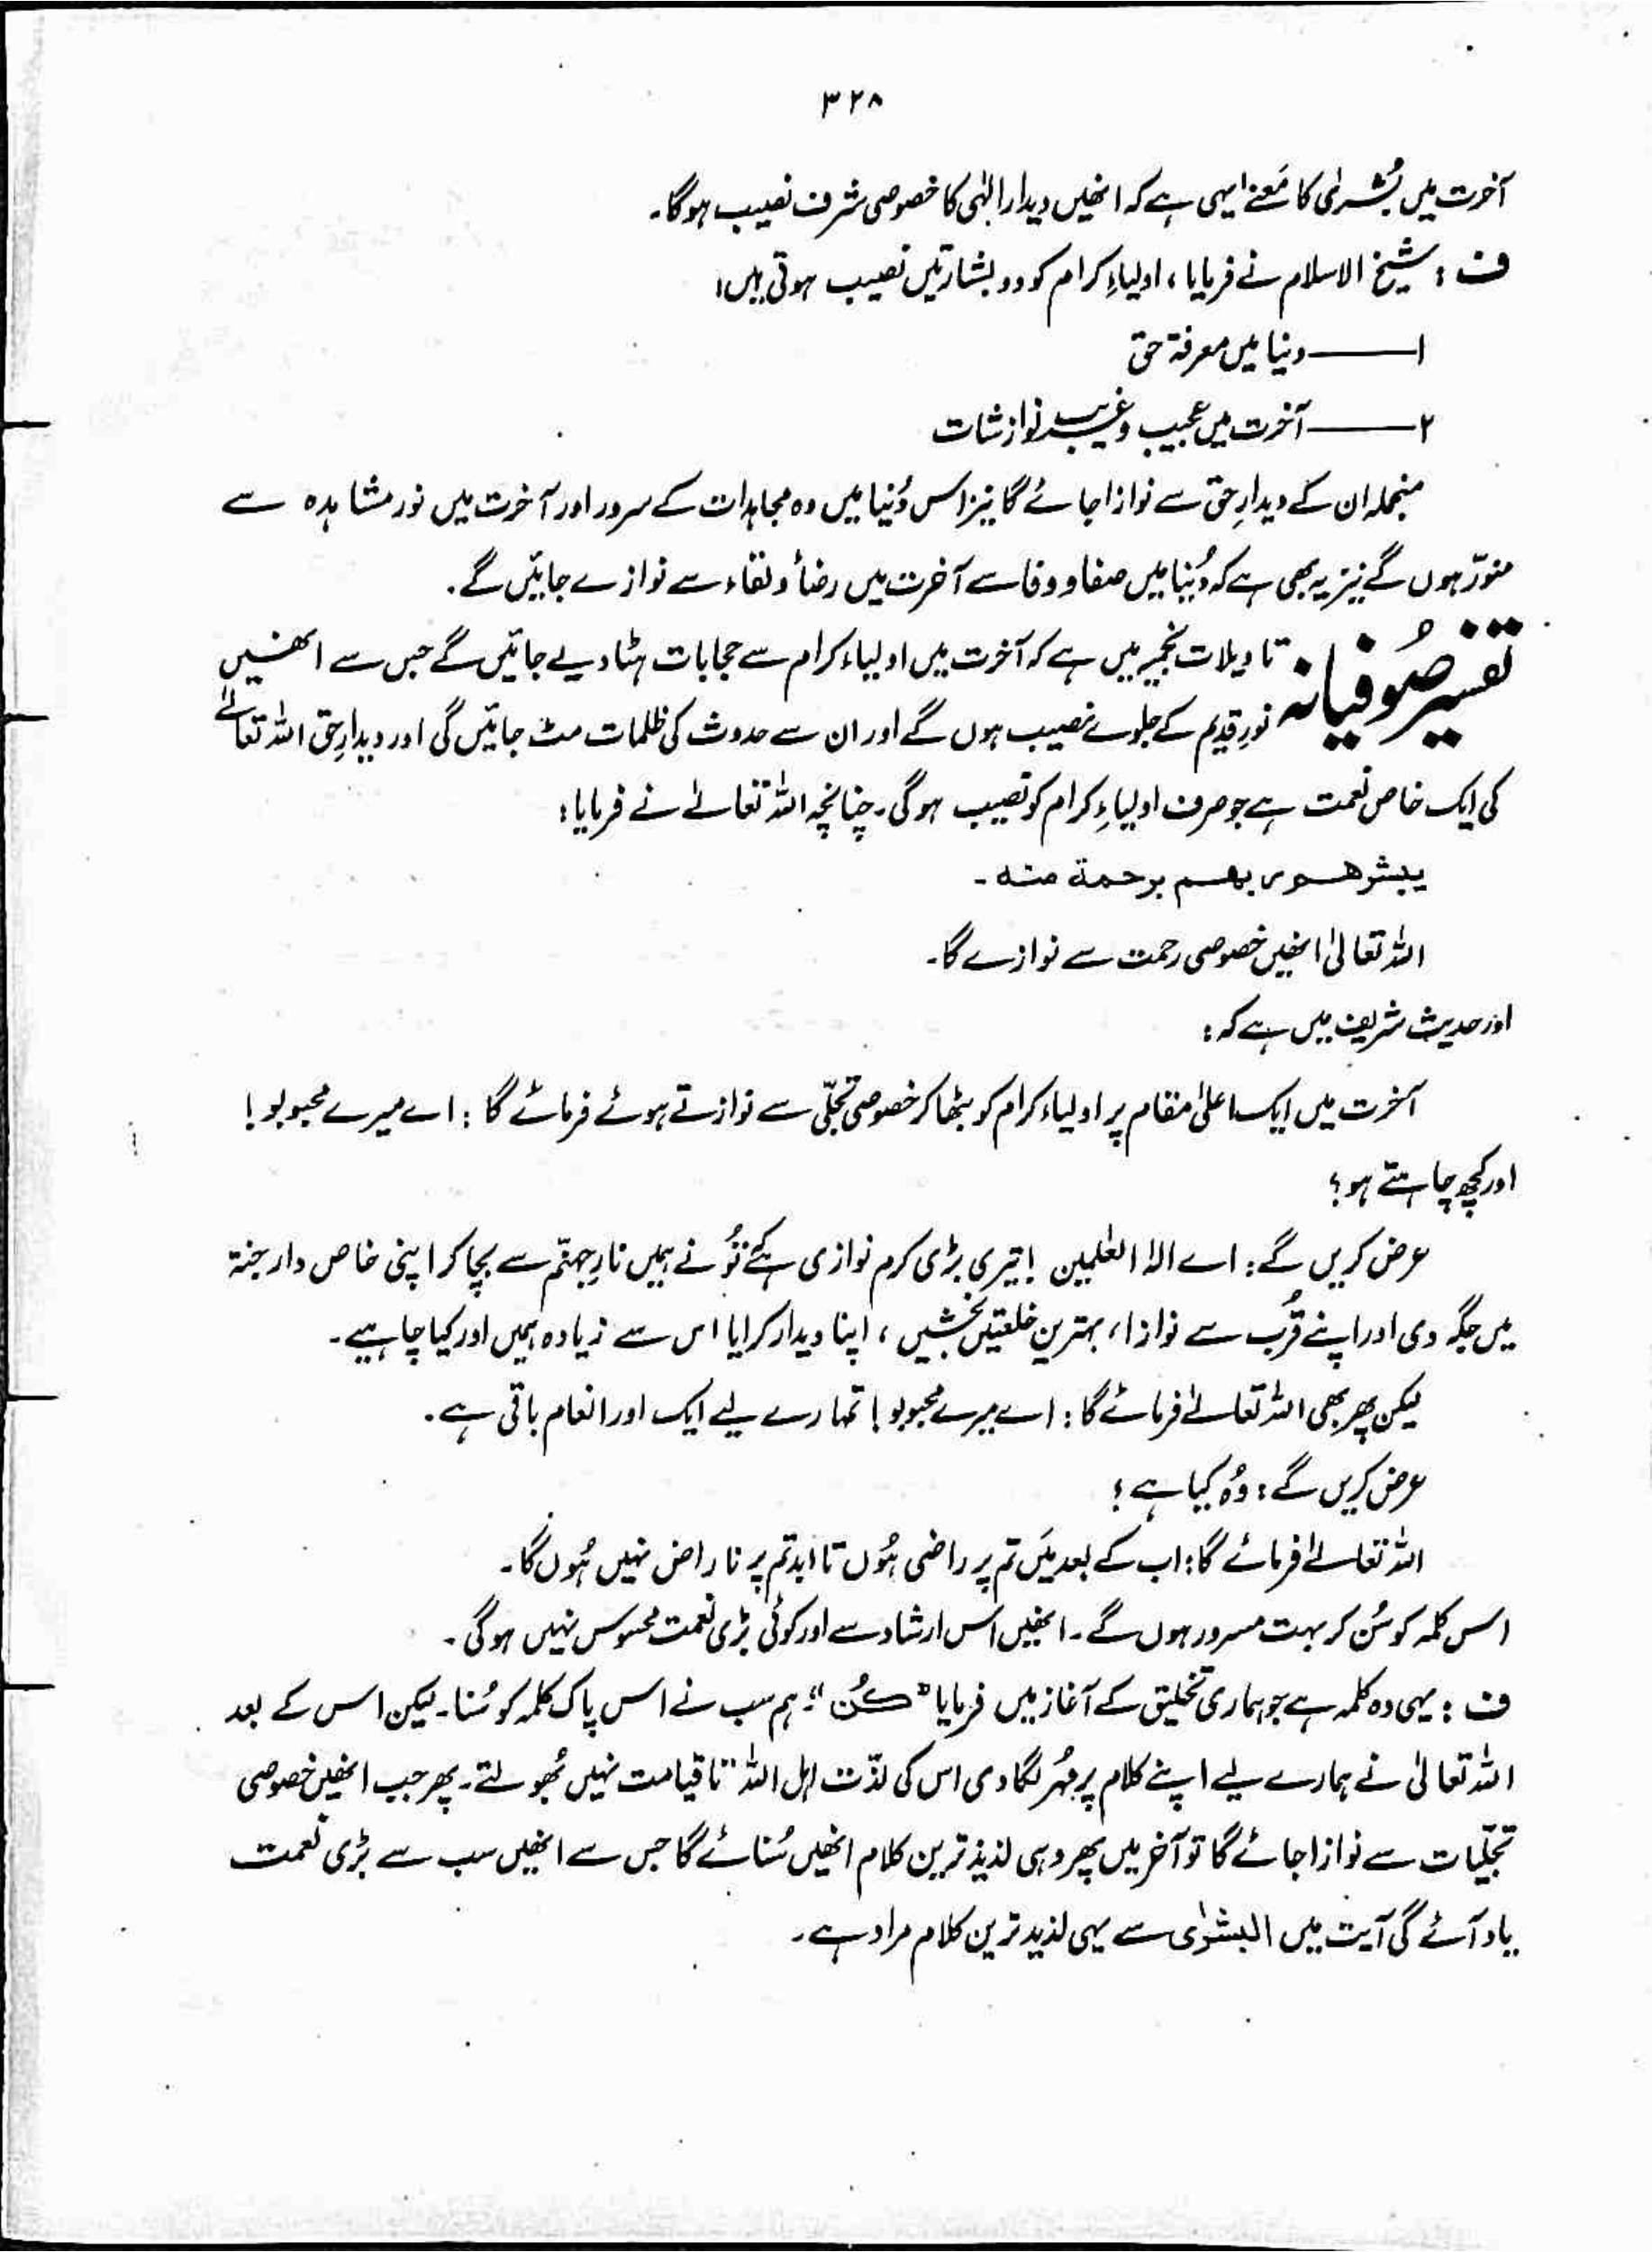 ۳۲۸
آخرت میں بُشریٰ کا مَعنےٰ یہی ہے کہ انھیں دیدارِ الٰہی کا خصوصی شرف نصیب ہوگا۔
ف : شیخ الاسلام نے فرمایا ، اولیاءِ کرام کو دو بشارتیں نصیب ہوتی ہیں :
۱ ——— دنیا میں معرفۃ حق
۲ ——— آخرت میں عجیب وغریب نوازشات
منجملہ ان کے دیدارِ حق سے نوازا جائے گا نیز اس دُنیا میں وہ مجاہدات کے سرور اور آخرت میں نور مشاہدہ سے
منوّر ہوں گے نیز یہ بھی ہے کہ دُنیا میں صفا و وفا سے آخرت میں رضاً و لقاء سے نوازے جائیں گے۔
تفسیر صُوفیانہ تاویلات نجمیہ میں ہے کہ آخرت میں اولیاء کرام سے حجابات ہٹا دیے جائیں گے جس سے انھیں
نورِ قدیم کے جلوے نصیب ہوں گے اور ان سے حدوث کی ظلمات مٹ جائیں گی اور دیدارِ حق اللہ تعالےٰ
کی ایک خاص نعمت ہے جو صرف اولیاءِ کرام کو نصیب ہوگی۔ چنانچہ اللہ تعالےٰ نے فرمایا :
یبشرھم ربھم برحمۃ منہ ۔
اللہ تعالیٰ انھیں خصوصی رحمت سے نوازے گا۔
اور حدیث شریف میں ہے کہ :
آخرت میں ایک اعلیٰ مقام پر اولیاء کرام کو بٹھا کر خصوصی تجلّی سے نوازتے ہوئے فرمائے گا : اے میرے محبوبو !
اور کچھ چاہتے ہو ؟
عرض کریں گے : اے الٰہ العٰلمین ! تیری بڑی کرم نوازی ہے کہ تُو نے ہمیں نارِ جہنّم سے بچا کر اپنی خاص دار جنۃ
میں جگہ دی اور اپنے قُرب سے نوازا ، بہترین خلعتیں بخشیں ، اپنا دیدار کرایا اس سے زیادہ ہمیں اور کیا چاہیے۔
لیکن پھر بھی اللہ تعالےٰ فرمائے گا : اے میرے محبوبو ! تمہارے لیے ایک اور انعام باقی ہے۔
عرض کریں گے : وُہ کیا ہے ؟
اللہ تعالےٰ فرمائے گا : اب کے بعد میَں تم پر راضی ہُوں تا ابد تم پر ناراض نہیں ہُوں گا۔
اس کلمہ کو سُن کر بہت مسرور ہوں گے۔ انھیں اس ارشاد سے اور کوئی بڑی نعمت محسوس نہیں ہوگی۔
ف : یہی وہ کلمہ ہے جو ہماری تخلیق کے آغاز میں فرمایا "کُن"۔ ہم سب نے اس پاک کلمہ کو سُنا۔ لیکن اس کے بعد
اللہ تعالیٰ نے ہمارے لیے اپنے کلام پر مُہر لگا دی اس کی لذّت اہل اللہ تا قیامت نہیں بُھولتے۔ پھر جب انھیں خصوصی
تجلّیات سے نوازا جائے گا تو آخر میں پھر وہی لذیذ ترین کلام انھیں سُنائے گا جس سے انھیں سب سے بڑی نعمت
یاد آئے گی آیت میں البشرٰی سے یہی لذیذ ترین کلام مراد ہے۔